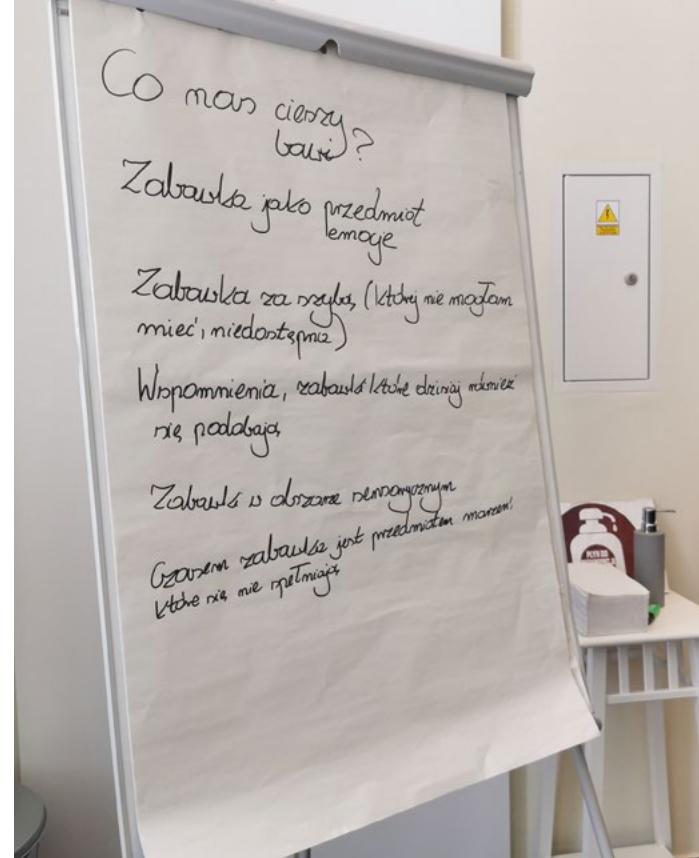 Co nas cieszy
bawi?
Zabawka jako przedmiot
emocje
Zabawka za szybą, (której nie mogłam
mieć, niedostępna)
Wspomnienia, zabawki które dzisiaj również
się podobają
Zabawki w obszarze sensorycznym
Czasem zabawka jest przedmiotem marzeń
które się nie spełniają
PŁYN DO